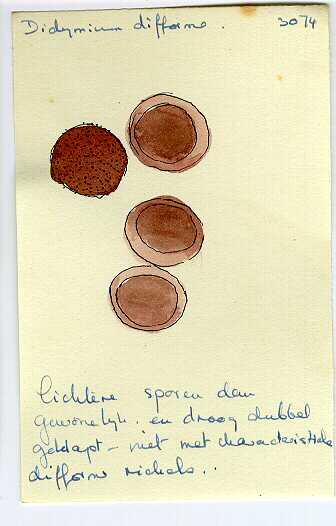 Didymium difforme. 3074
lichtere sporen dan
gewonelijk. en droog dubbel
geklapt - niet met characteristieke
difforme richels..